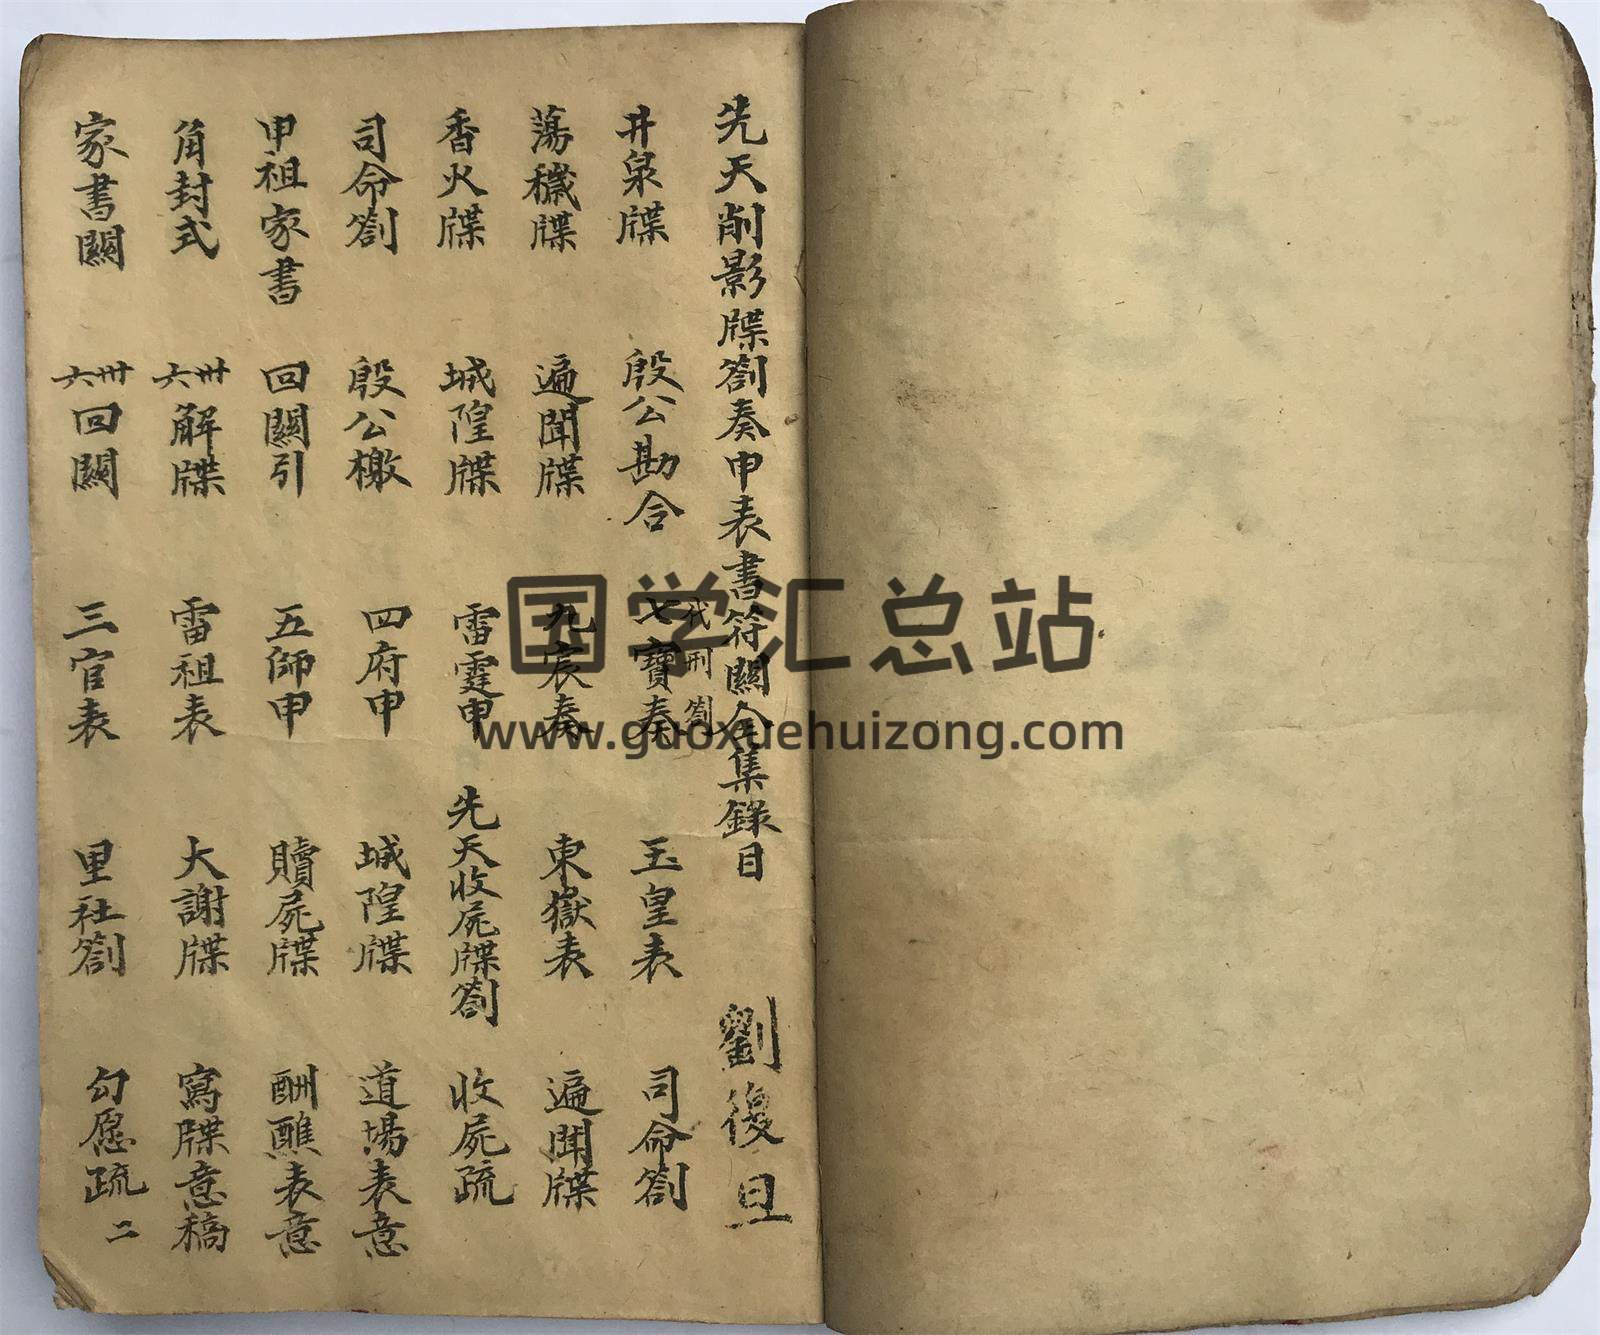 先天削影牒劄奏申表書符關全集錄目 劉復旦
井泉牒 殷公勘合 七寶奏 玉皇表 司命劄
代刑劄
蕩穢牒 遍聞牒 九宸奏 東嶽表 遍聞牒
香火牒 城隍牒 雷霆申 先天收屍牒劄 收屍疏
司命劄 殷公檄 四府申 城隍牒 道場表意
申祖家書 回關引 五師申 贖屍牒 酬醮表意
角封式 卅六解牒 雷祖表 大謝牒 寫牒意稿
家書關 卅六回關 三官表 里社劄 勾愿疏 二
国学汇总站
www.guoxuehuizong.com